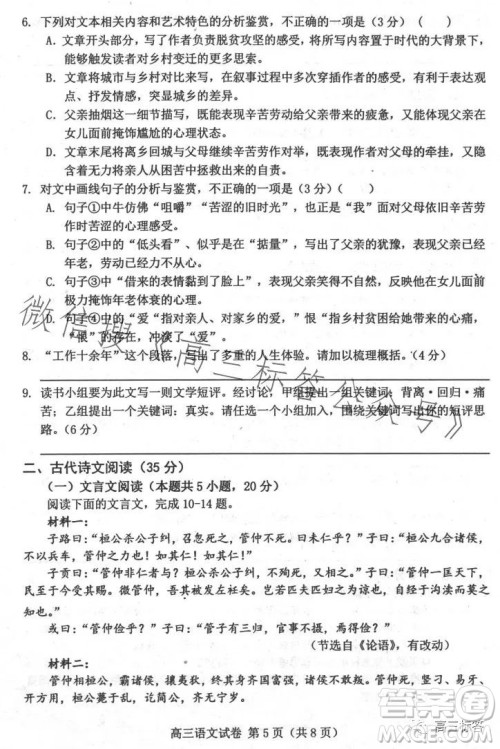 6. 下列对文本相关内容和艺术特色的分析鉴赏，不正确的一项是（3分）（ ）
A. 文章开头部分，写了作者负责脱贫攻坚的感受，将故事内容置于时代的大背景下，
能够触发读者对乡村变迁的更多思索。
B. 文章将城市与乡村对比，在叙事过程中多次穿插作者的感受，有利于表达观
点、抒发情感，引人深思。
C. 父亲抽烟这一细节描写，表现了辛苦劳动给父亲带来的疲惫，也表现了父亲在
女儿面前掩饰尴尬的心理状态。
D. 文章末尾将离乡回城与父亲的辛苦劳动作对比，表现作者对父亲的牵挂，又从
自身的困苦中拯救出来的自责。
7. 对文中画线句子的分析与鉴赏，不正确的一项是（3分）（ ）
A. 句子①中牛仿佛“咀嚼”“苦涩的旧时光”，由物及人，引出对父亲辛苦劳作
的苦涩的心理感受。
B. 句子②中的“低头看”、似乎是在“掂量”，写出了父亲的犹豫，表现父亲已经
年老、劳动能力下降的状态。
C. 句子③中“借来的表情黏到了脸上”，表现父亲笑得不自然，反映父亲在女儿面前
极力掩饰年老体衰的心情。
D. 句子④中的“爱”指对乡人、对家乡的爱，“恨”指对乡村贫困及其严酷的恨，
“恨”的存在，冲淡了“爱”。
8. “工作十余年”这个段落，写出了多重的人生体验。请加以梳理概括。（4分）
9. 读书小组要为此文写一则文学短评。经讨论，甲组提出一组关键词：背离·回归·痛
苦；乙组提出一个关键词：真实。请任选一个小组加入，围绕关键词写出你的短评思
路。（4分）
二、古代诗文阅读（35分）
（一）文言文阅读（本题共5小题，20分）
阅读下面的文言文，完成10-14题。
材料一：
子路曰：“桓公杀公子纠，召忽死之，管仲不死。曰未仁乎？”子曰：“桓公九合诸侯，
不以兵车，管仲之力也！如其仁！如其仁！”
子贡曰：“管仲非仁者与？桓公杀公子纠，不能死，又相之。”子曰：“管仲一匡天下，
民到于今受其赐。微管仲，吾其被发左衽矣。岂若匹夫匹妇之为谅也，自经于沟渎而莫之
知也？”
或曰：“管仲俭乎？”曰：“管子有三归，官事不摄，焉得俭？”
（节选自《论语》，有改动）
材料二：
管仲相桓公，霸诸侯，攘夷狄，终其身齐国富强，诸侯不敢叛。管仲死，竖刁、易
高三语文试卷 第5页（共8页）
微信搜《高三标答公众号》
高三标答